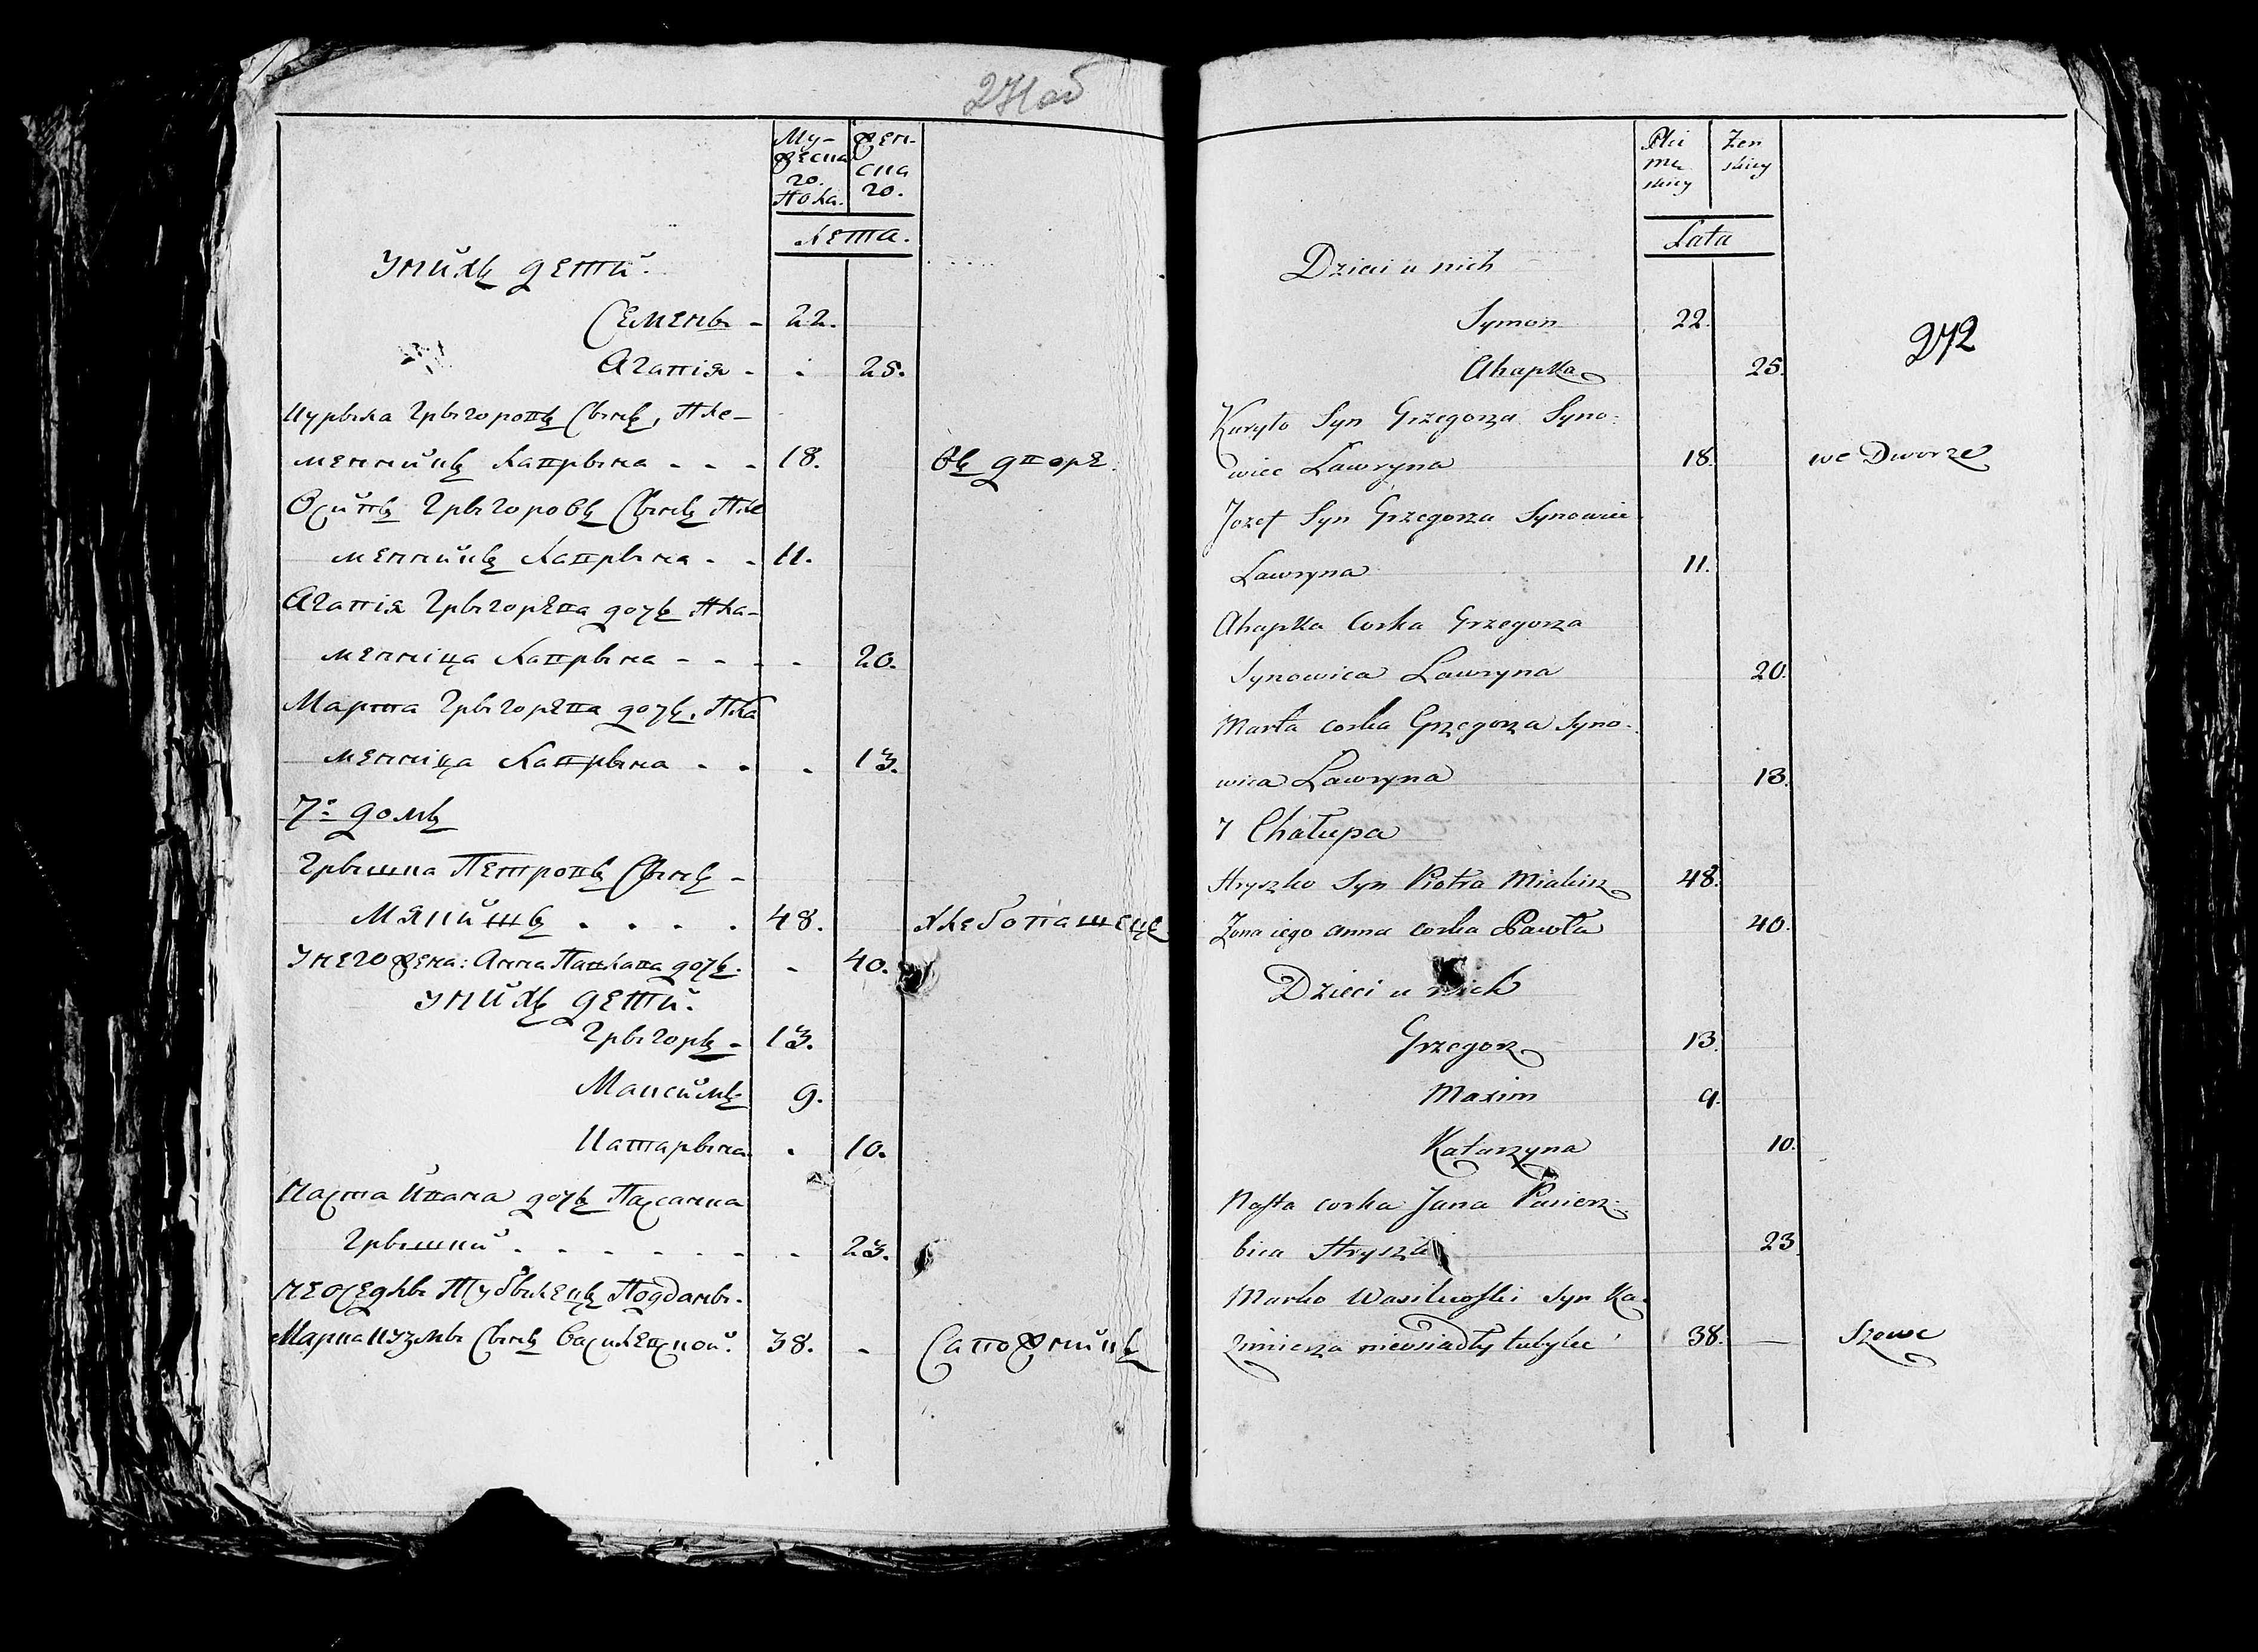 271 об
Му-
жеска
го.
Пола.
жен-
ска
го.
Лета.
У нихъ дети.
Семенъ - 22.
Агапія - - 25.
Курыла Грыгоровъ сынъ, Пле-
менникъ Лаврына - - - 18. въ дворе.
Осипъ Грыгоровъ сынъ Пле
менникъ Лаврына - - 11.
Агапія Грыгорева дочъ Пла-
менница Лаврына - - - - 20.
Марта Грыгорева дочъ. Пла
менница Лаврына - - . 13.
7й домъ
Грышка Петровъ сынъ -
Мякишъ . . . . 48. хлебопашецъ
У него жена: Анна Павлава дочъ. - 40.
У нихъ дети.
Грыгоръ - 13.
Максимъ 9.
Катарына . 10.
Наста Ивана дочъ Пасанка
Грышки . - - - - - - 23.
неоседлы Тубылецъ Подданы.
Марка Кузмы сынъ Василевской. 38. - Сапожникъ
Płci
mę
skiey
Żen
skiey
Lata
272
Dzieci u nich
Symon 22.
Ahapka 25.
Kuryło Syn Grzegorza Syno-
wiec Ławryna 18. we Dworze
Jozef Syn Grzegorza Synowiec
Ławryna 11.
Ahapka Corka Grzegorza
Synowica Ławryna 20.
Marta corka Grzegorza Syno-
wica Ławryna 13.
7 Chałupa
Hryszko Syn Piotra Miakisz 48.
Żona iego Anna corka Pawła 40.
Dzieci u nich
Grzegorz 13.
Maxim 9.
Katarzyna 10.
Nasta corka Jana Pasierz-
bica Hryszki 23.
Marko Wasilewski Syn Ka-
zimierza nieosiadły tubylec 38. — Szewc